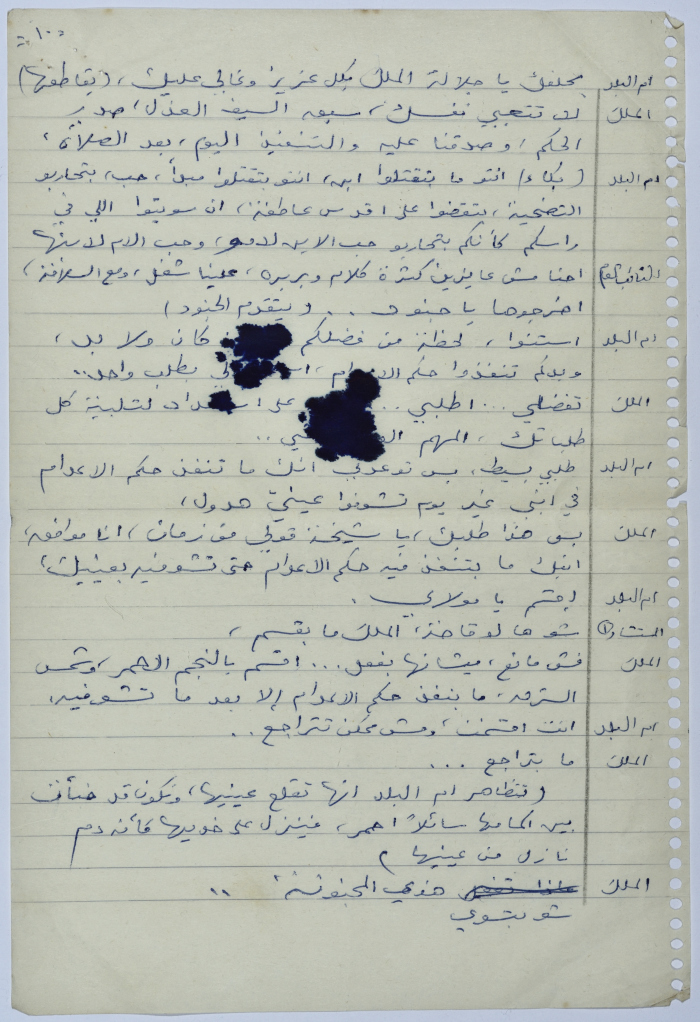 ١٠٠
ام البلد بحلفك يا جلالة الملك بكل عزيز وغالي عليك، (يقاطعها)
الملك لا تتعبي نفسك، سبق السيف العذل، صدر
الحكم، وصدقنا عليه والتنفيذ اليوم، بعد الصلاة،
ام البلد (بكاء) انتو ما بتقتلوا ابني، انتو بتقتلوا مبدأ، حب، بتحاربو
التضحية، بتقضوا على اقدس عاطفة، ان سويتوا اللي في
راسكم كأنكم بتحاربو حب الابن لامه، وحب الام لابنها
النائب العام احنا مش عايزين كثرة كلام وبربره، علينا شغل، ومع السلامة،
اخرجوها يا جنود .. (يتقدم الجنود)
ام البلد استنوا، لحظة من فضلكم كان ولا بد،
وبدكم تنفذوا حكم الاعدام، لي بطلب واحد..
الملك تفضلي... اطلبي .. على استعداد لتلبية كل
طلباتك، المهم ..
ام البلد طلبي بسيط، بس توعدني انك ما تنفذ حكم الاعدام
في ابني غير يوم تشوفوا عينيّ هدول،
الملك بس هذا طلبك، يا شيخة قولي من زمان، انا موافق،
ابنك ما بتنفذ فيه حكم الاعدام حتى تشوفيه بعينيك،
ام البلد اقسم يا مولاي.
المستشار ١ شو هالوقاحة، الملك ما بقسم،
الملك فش مانع، ميشانها بفعل ... اقسم بالنجم الاحمر، وشمس
الشرق، ما بنفذ حكم الاعدام إلا بعد ما تشوفيه،
ام البلد انت اقسمت، ومش ممكن تتراجع ..
الملك ما بتراجع ...
(تتظاهر ام البلد انها تقلع عينيها، وتكون قد خبأت
بين اكمامها سائلاً احمر، فينزل على خديها كأنه دم
نازل من عينيها)
الملك هذي المجنونة، ..
شو بتسوي